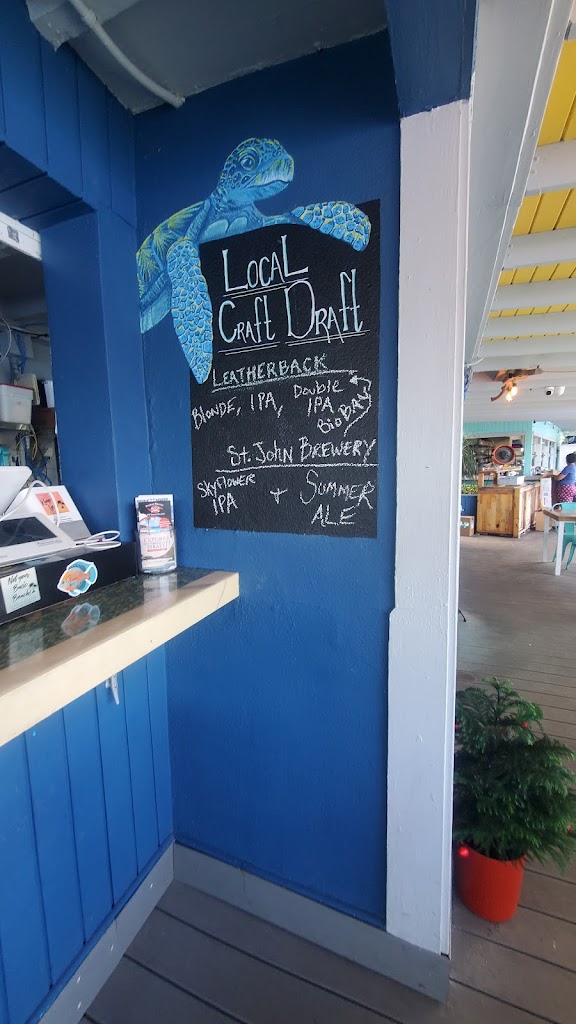 LOCAL
CRAFT DRAFT
LEATHERBACK
BLONDE, IPA, DOUBLE IPA
BIOBAY
ST. JOHN BREWERY
SKYFLOWER IPA + SUMMER ALE
Not your
Basic
Beach!